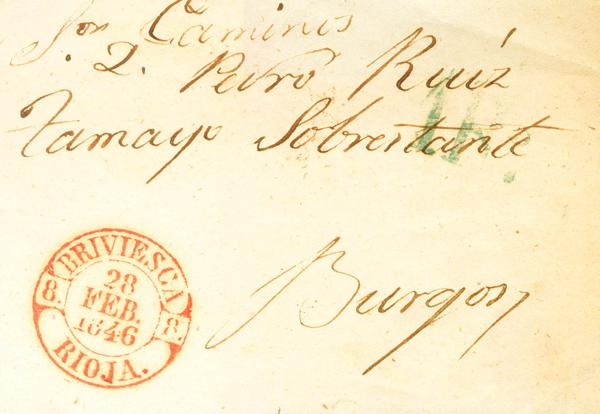 Caminos
D. Pedro Ruiz
Tamayo Sobrestante
Burgos
BRIVIESCA
8. 28 8.
FEB.
1846
RIOJA.